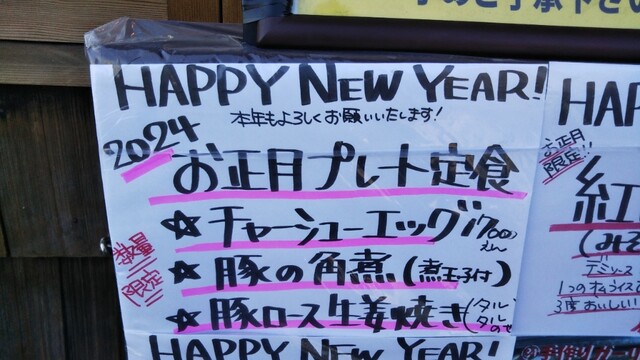 HAPPY NEW YEAR!
本年もよろしくお願いいたします!
2024
お正月プレート定食
☆チャーシューエッグ
えん
★豚の角煮(煮玉子付)
★豚ロース生姜焼き(タルタルのせ
数量限定!!
HAPPY NEW YEAR
HAP
お正月
限定!!
紅
(みそ
デミソース
1つのオムライスで
3度おいしい!